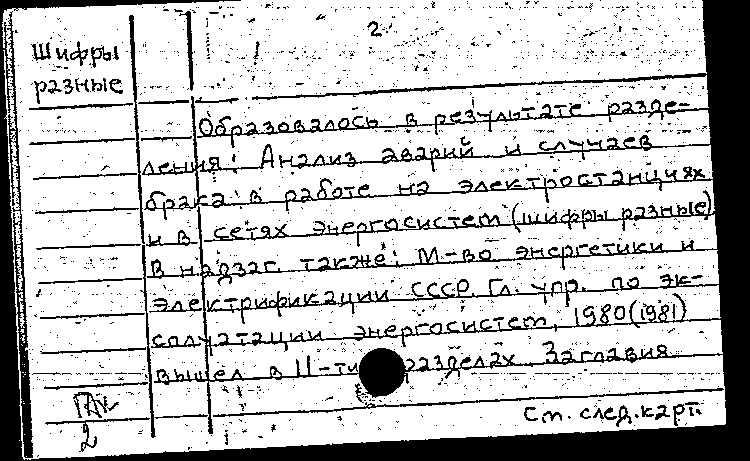 2
Шифры
разные
Образовалось в результате разде-
ления: Анализ аварий и случаев
брака в работе на электростанциях
и в сетях энергосистем (шифры разные)
В надзаг. также: М-во энергетики и
электрификации СССР. Гл. упр. по эк-
сплуатации энергосистем, 1980(1981)
вышел в 11-ти разделах. Заглавия
См. след. карт.
2